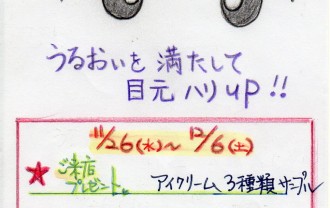 うるおいを 満たして
目元 ハリ up!!
11/26(水)～ 12/6(土)
ご来店
プレゼント
アイクリーム 3種類 サンプル